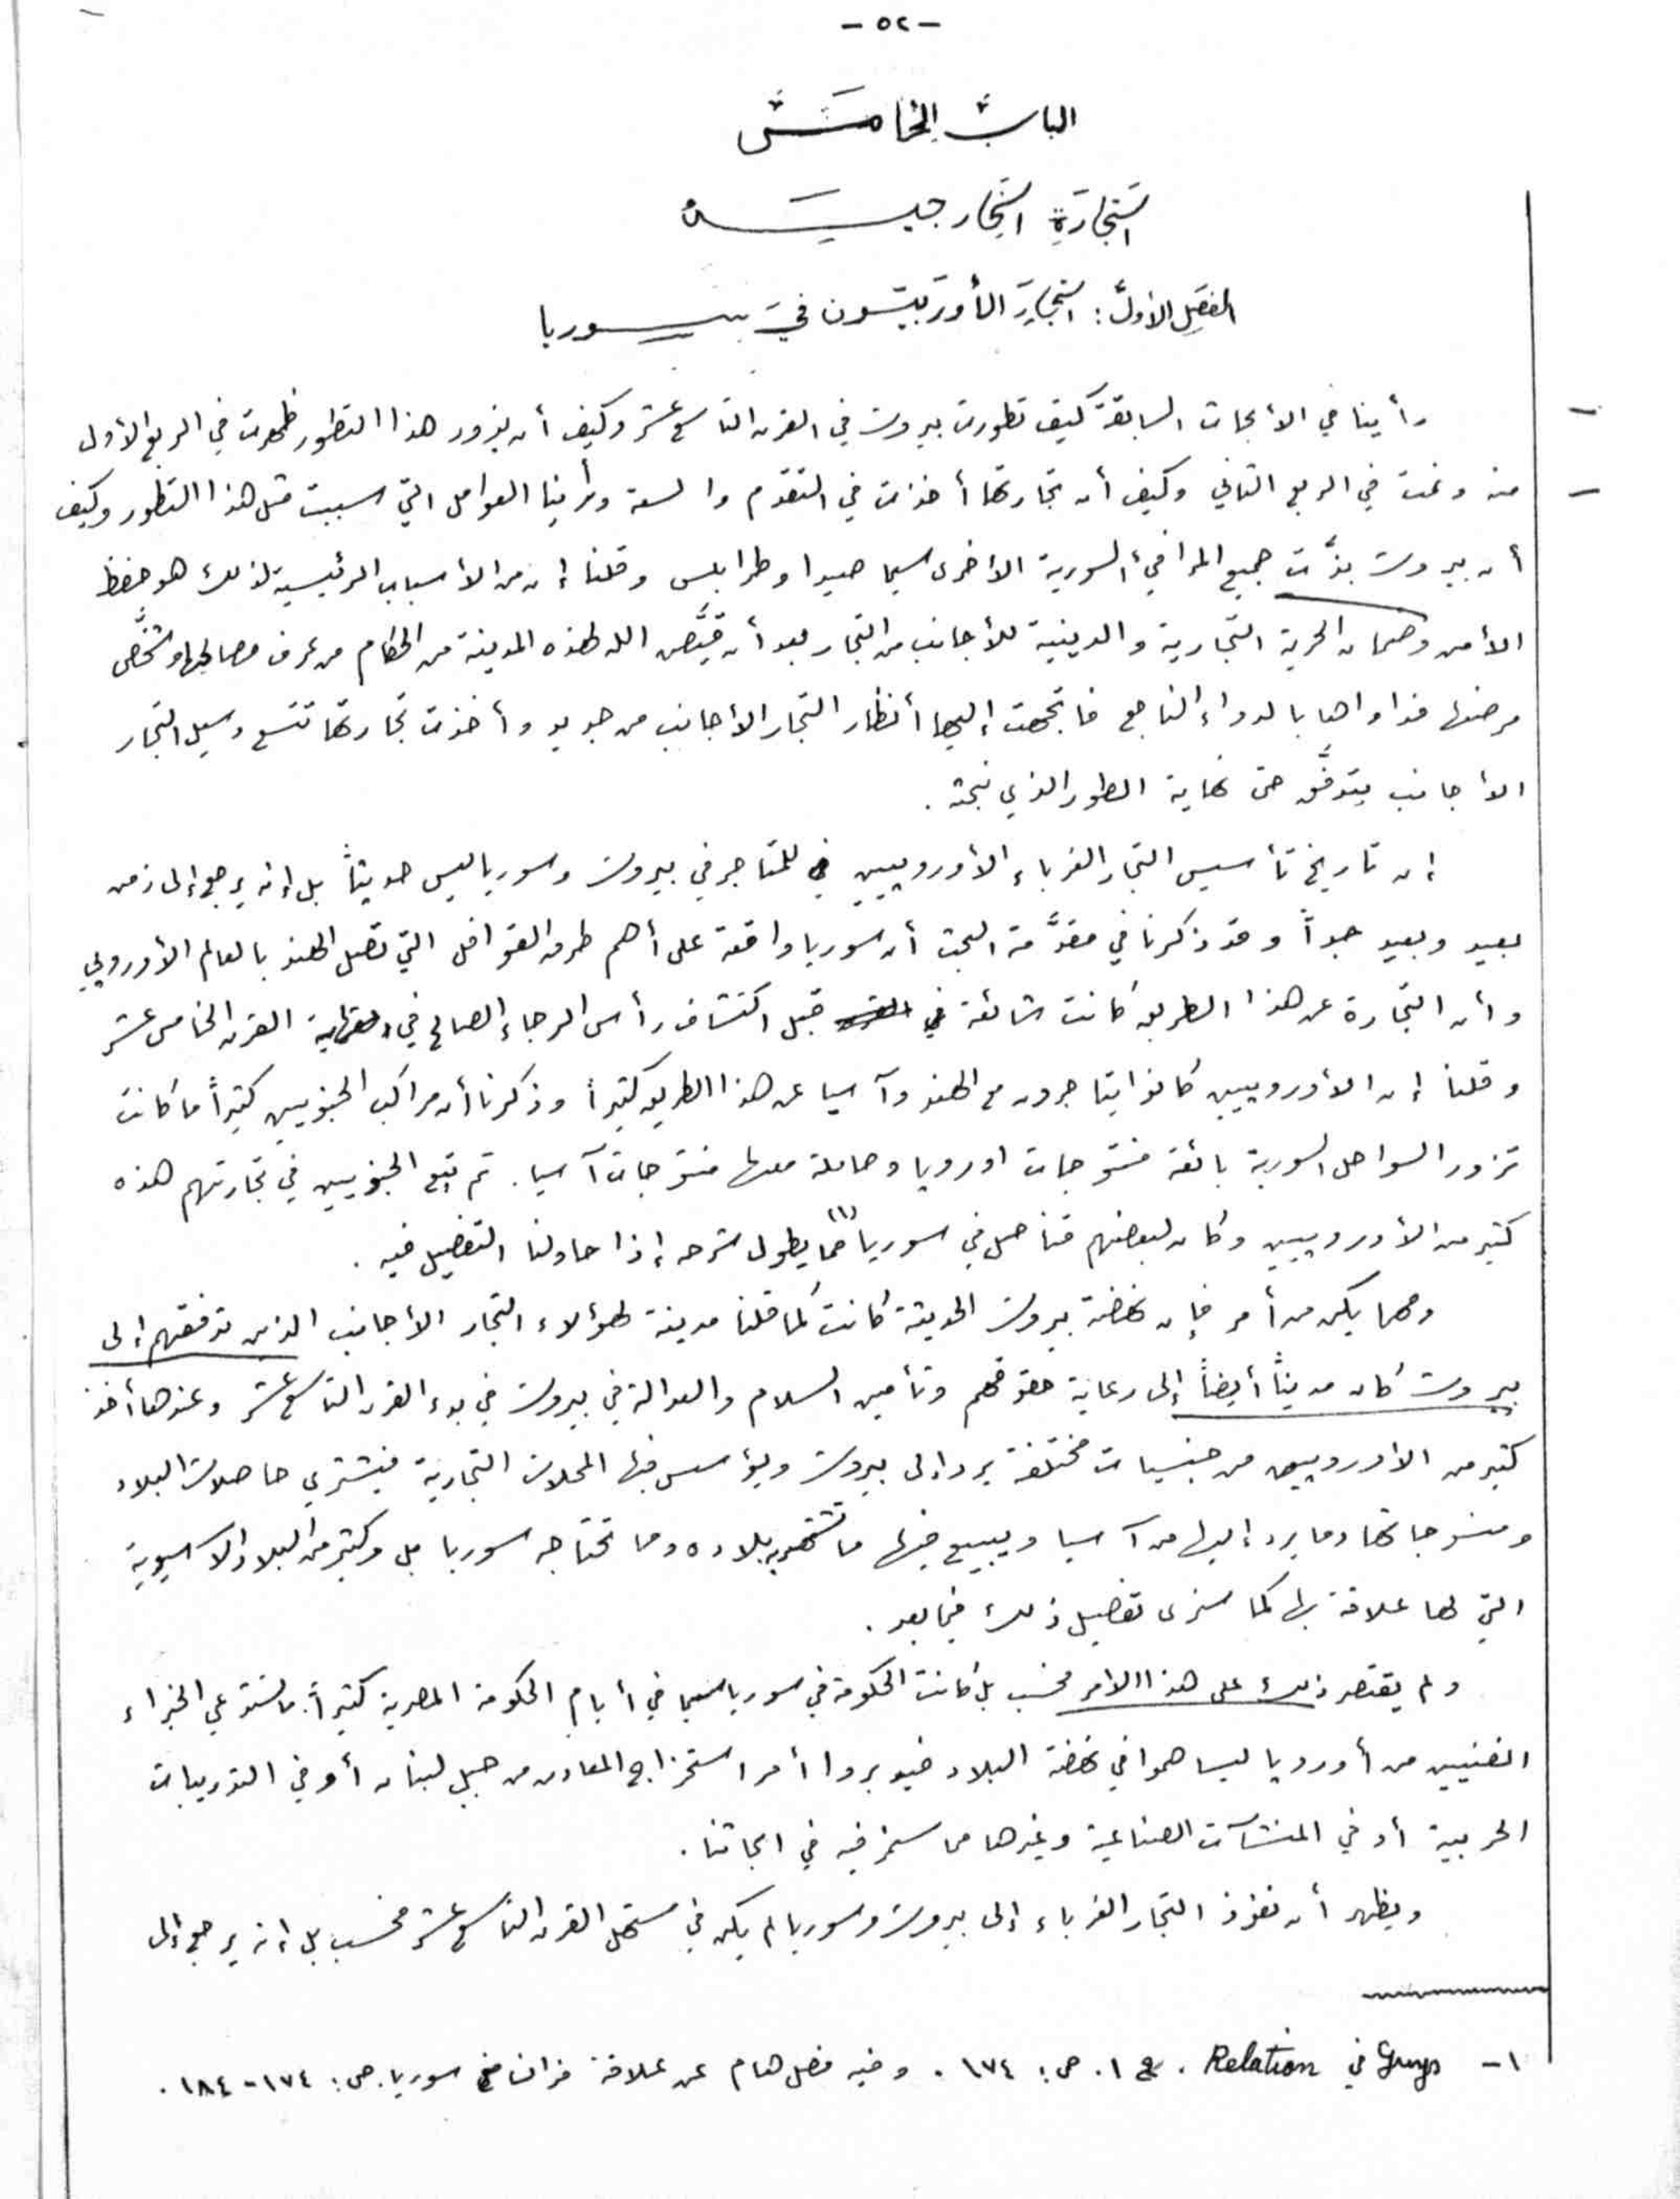 - ٥٢ -
الباب الخامس
التجارة الخارجية
الفصل الأول: التجار الأوربيّون في سوريا
رأينا في الأبحاث السابقة كيف تطورت بيروت في القرن التاسع عشر وكيف أن بزور هذا التطور ظهرت في الربع الأول
منه ونمت في الربع الثاني وكيف أن تجارتها أخذت في التقدم والسعة ورأينا العوامل التي سببت مثل هذا التطور وكيف
أن بيروت بذَّت جميع المرافئ السورية الأخرى سيما صيدا وطرابلس وقلنا إن من الأسباب الرئيسية لذلك هو حفظ
الأمن وضمان الحرية التجارية والدينية للأجانب من التجار بعد أن قيَّض الله لهذه المدينة من الحكام من عرف مصالحها وشخَّص
مرضها فداواها بالدواء الناجع فاتجهت إليها أنظار التجار الأجانب من جديد وأخذت تجارتها تتسع وسيل التجار
الأجانب يتدفَّق حتى نهاية الطور الذي نبحثه .
إن تاريخ تأسيس التجار الغرباء الأوروبيين للمتاجر في بيروت وسوريا ليس حديثاً بل إنه يرجع إلى زمن
بعيد وبعيد جداً وقد ذكرنا في مقدَّمة البحث أن سوريا واقعة على أهم طرق القوافل التي تصل الهند بالعالم الأوروبي
وأن التجارة عن هذا الطريق كانت شائعة قبل اكتشاف رأس الرجاء الصالح في نهاية القرن الخامس عشر
وقلنا إن الأوروبيين كانوا يتاجرون مع الهند وآسيا عن هذا الطريق كثيراً وذكرنا أن مراكب الجنويين كثيراً ما كانت
تزور السواحل السورية بائعة منتوجات اوروبا وحاملة معها منتوجات آسيا . ثم تبع الجنويين في تجارتهم هذه
كثير من الأوروبيين وكان لبعضهم قناصل في سوريا (١) مما يطول شرحه إذا حاولنا التفصيل فيه .
ومهما يكن من أمر فإن نهضة بيروت الحديثة كانت كما قلنا مدينة لهؤلاء التجار الأجانب الذين تدفقهم إلى
بيروت كان مديناً أيضاً إلى رعاية حقوقهم وتأمين السلام والعدالة في بيروت في بدء القرن التاسع عشر وعندها أخذ
كثير من الأوروبيين من جنسيات مختلفة يرد إلى بيروت ويؤسس فيها المحلات التجارية فيشتري حاصلات البلاد
ومنسوجاتها وما يرد إليها من آسيا ويبيع فيها ما تشتهر به بلاده وما تحتاجه سوريا بل وكثير من البلاد الاسيوية
التي لها علاقة بها كما سنرى تفصيل ذلك فيما بعد .
ولم يقتصر ذلك على هذا الامر فحسب بل كانت الحكومة في سوريا سيما في أيام الحكومة المصرية كثيراً ما تستدعي الخبراء
الفنيين من أوروبا ليساهموا في نهضة البلاد فيديروا أمر استخراج المعادن من جبل لبنان أو في التدريبات
الحربية أو في المنشآت الصناعية وغيرها مما سنمر فيه في ابحاثنا .
ويظهر أن نفوذ التجار الغرباء إلى بيروت وسوريا لم يكن في مستهل القرن التاسع عشر فحسب بل إنه يرجع إلى
١ - Guys في Relation . ج ١ . ص : ١٧٤ . وفيه فصل هام عن علاقة فرانسا مع سوريا . ص : ١٧٤ - ١٨٤ .